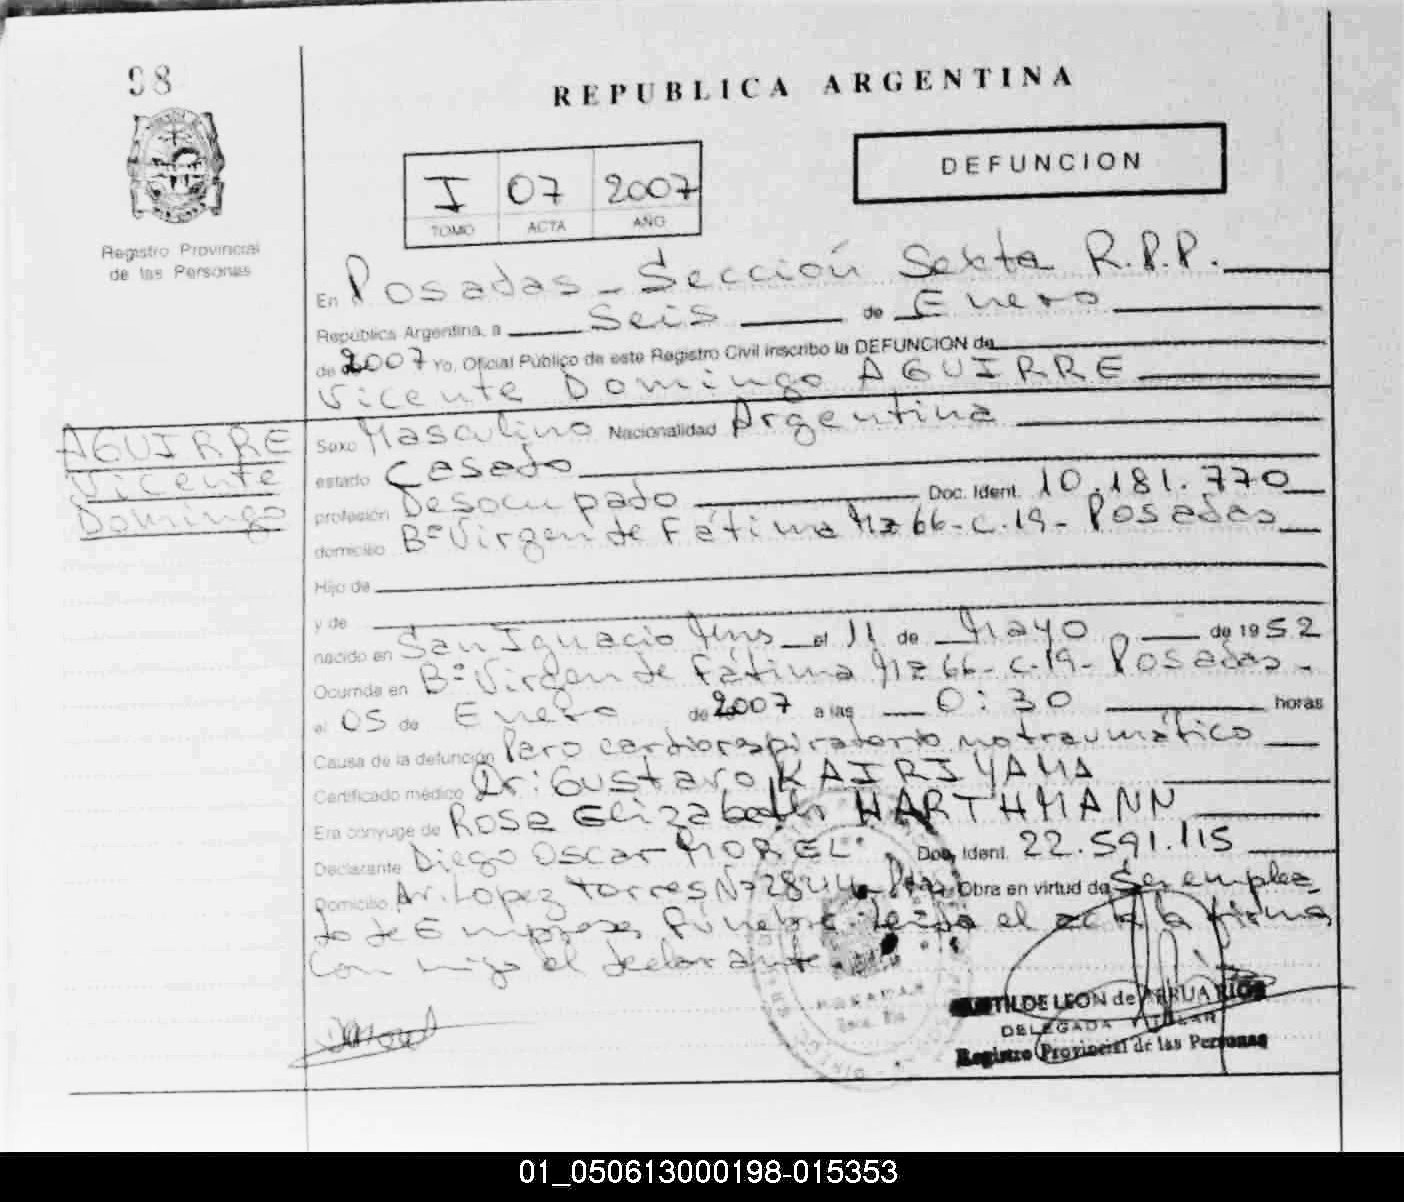 98
REPUBLICA ARGENTINA
DEFUNCION
I 07 2007
TOMO ACTA AÑO
Registro Provincial
de las Personas
En Posadas - Sección Sexta R.P.P.
República Argentina, a Seis de Enero
de 2007 Yo, Oficial Público de este Registro Civil inscribo la DEFUNCION de
Vicente Domingo AGUIRRE
AGUIRRE
Vicente
Domingo
Sexo Masculino Nacionalidad Argentina
estado Casado
profesión Desocupado Doc. Ident. 10.181.770
domicilio Bº Virgen de Fátima Mz 66 - C.19 - Posadas
Hijo de
y de
nacido en San Ignacio Mns el 11 de Mayo de 1952
Ocurrida en Bº Virgen de Fátima Mz 66 - C.19 - Posadas -
el 05 de Enero de 2007 a las 0:30 horas
Causa de la defunción Paro cardiorespiratorio no traumático
Certificado médico Dr: Gustavo KAIRIYAMA
Era cónyuge de Rosa Elizabeth HARTHMANN
Declarante Diego Oscar MOREL Doc. Ident. 22.591.115
Domicilio Av. Lopez Torres Nº Obra en virtud de Ser emplea
do de Empresa Fúnebre. Leída el acta la firma
con migo el declarante
DE LEON de ARRUA RIOS
DELEGADA TITULAR
Registro Provincial de las Personas
01_050613000198-015353